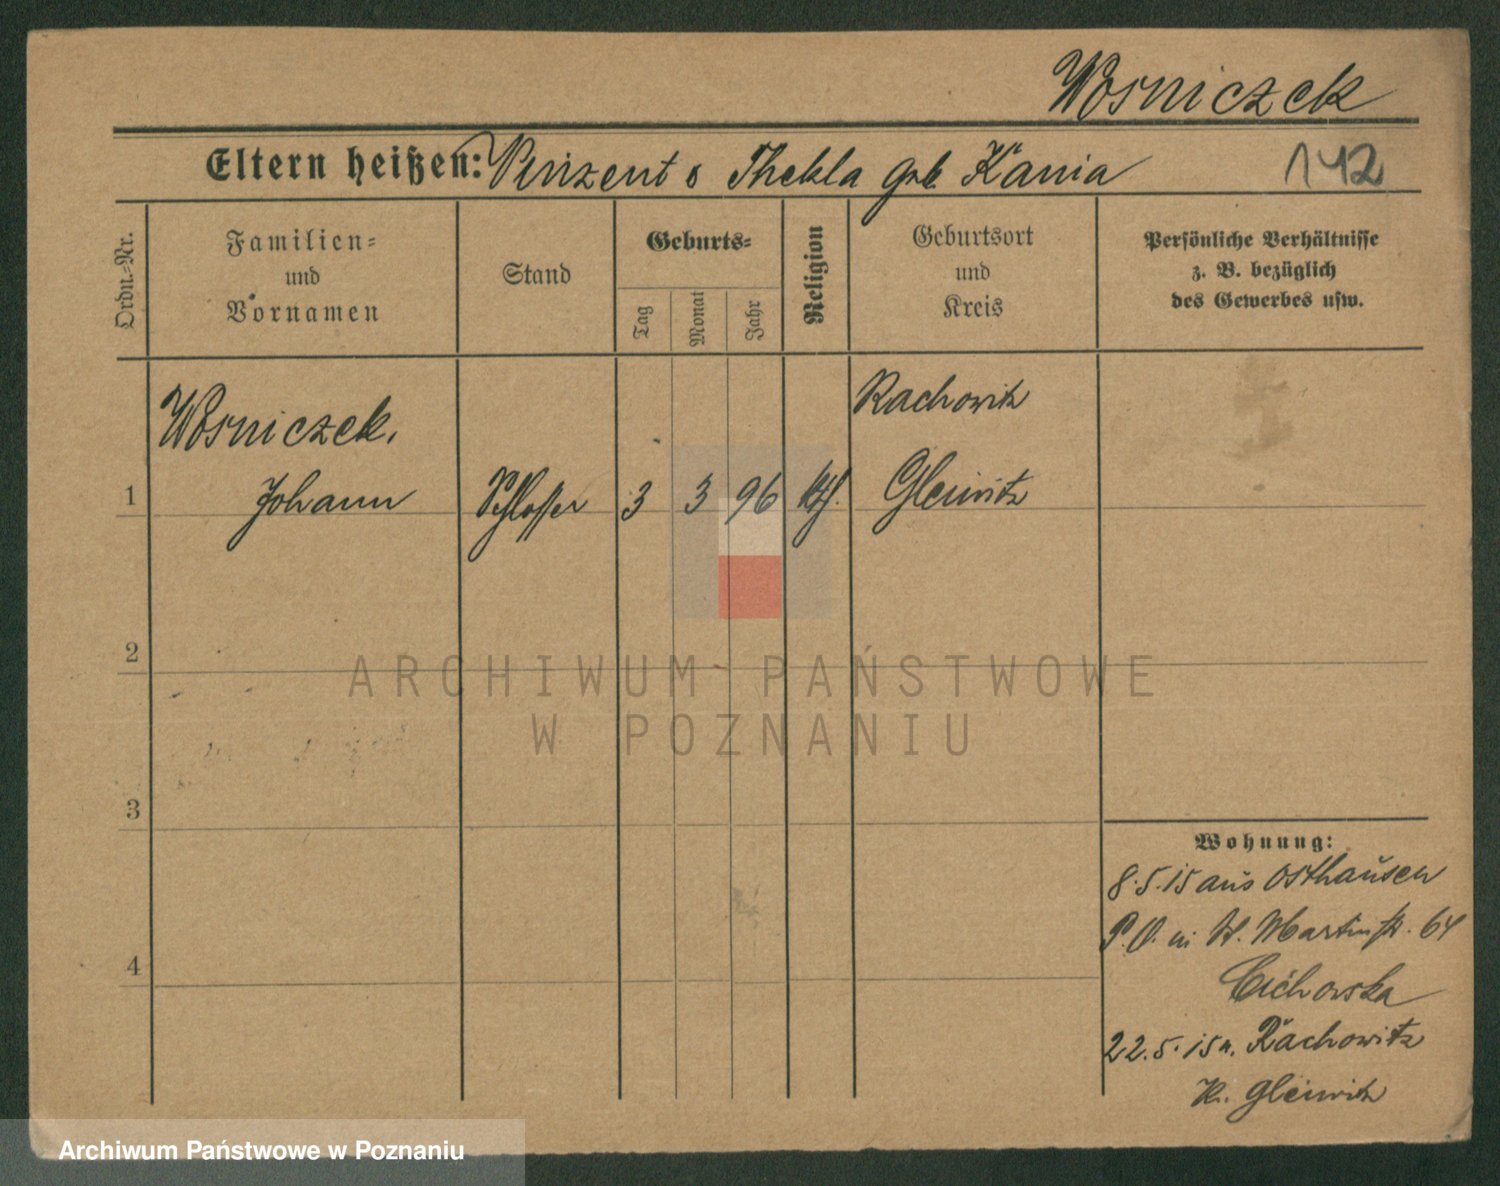 Wosniczek
Eltern heißen: Vinzent s Thekla geb. Kania
142
Ordn.-Nr.
Familien-
und
Vornamen
Stand
Geburts-
Tag
Monat
Jahr
Religion
Geburtsort
und
Kreis
Persönliche Verhältnisse
z. B. bezüglich
des Gewerbes usw.
Wosniczek.
Rachowitz
1 Johann Schlosser 3 3 96 kth. Gleiwitz
2
ARCHIWUM PAŃSTWOWE
W POZNANIU
3
Wohnung:
8.5.15 aus Osthausen
P. O. in W. Martinstr. 64
4
Cichowska
22.5.15 n. Rachowitz
Kr. Gleiwitz
Archiwum Państwowe w Poznaniu